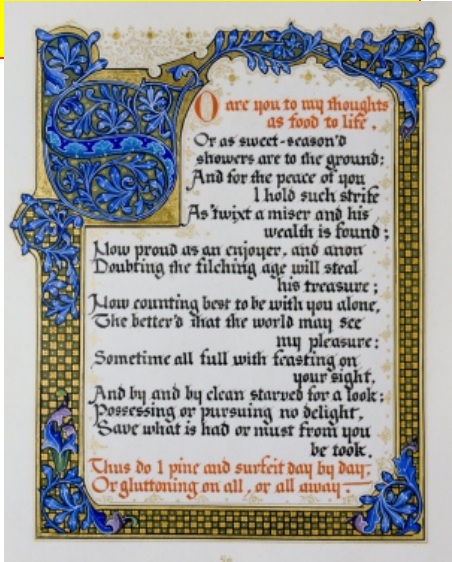 SO are you to my thoughts
as food to life,
Or as sweet-season'd
showers are to the ground;
And for the peace of you
I hold such strife
As 'twixt a miser and his
wealth is found;
Now proud as an enjoyer, and anon
Doubting the filching age will steal
his treasure;
Now counting best to be with you alone,
The better'd that the world may see
my pleasure:
Sometime all full with feasting on
your sight,
And by and by clean starved for a look;
Possessing or pursuing no delight,
Save what is had or must from you
be took.
Thus do I pine and surfeit day by day,
Or gluttoning on all, or all away—